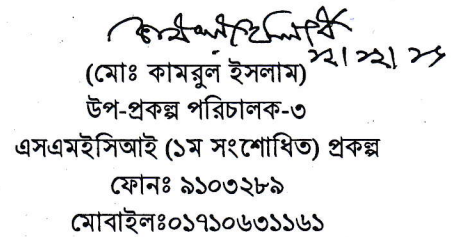 (মোঃ কামরুল ইসলাম)
উপ-প্রকল্প পরিচালক-৩
এসএমইসিআই (১ম সংশোধিত) প্রকল্প
ফোনঃ ৯১০৩২৮৯
মোবাইলঃ০১৭১০৬৩১১৬১